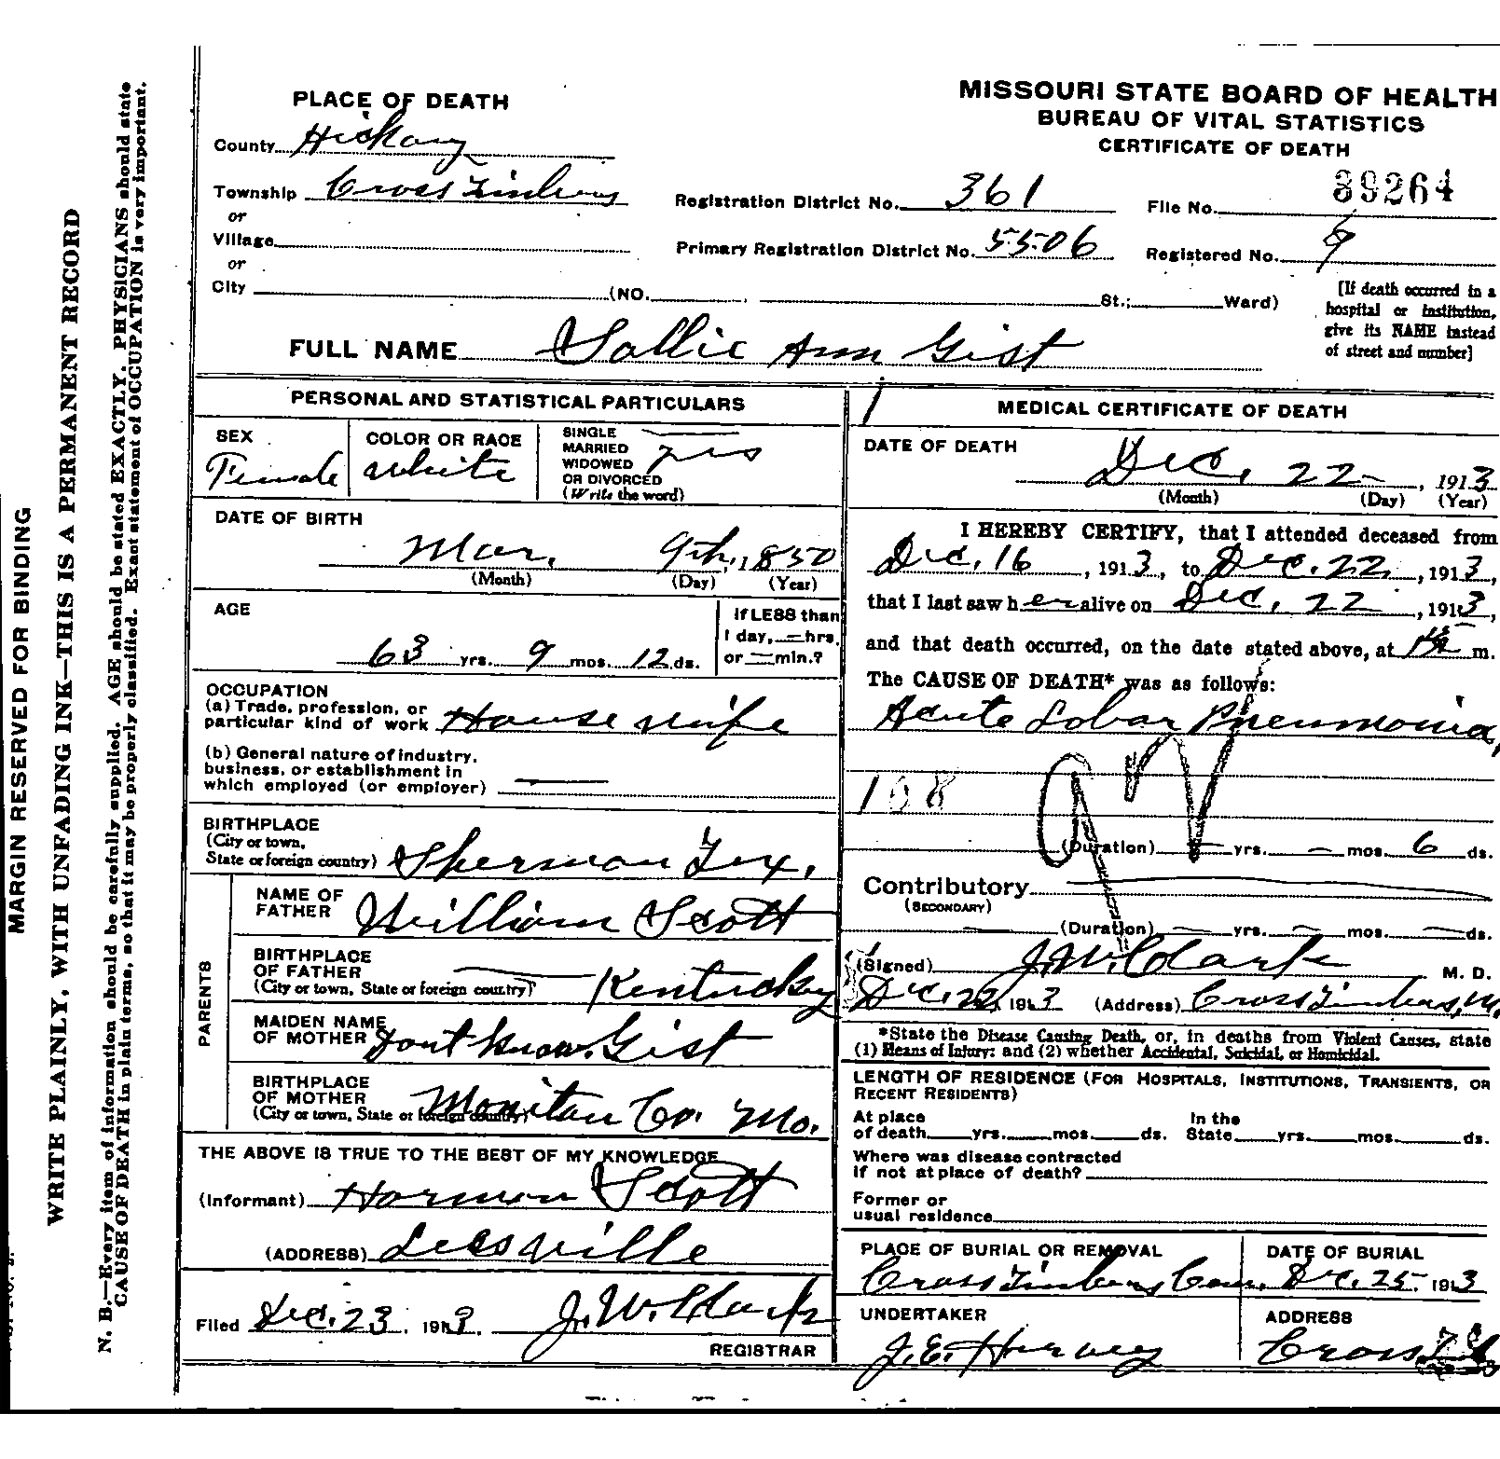 MARGIN RESERVED FOR BINDING
WRITE PLAINLY, WITH UNFADING INK—THIS IS A PERMANENT RECORD
N. B.—Every item of information should be carefully supplied. AGE should be stated EXACTLY. PHYSICIANS should state
CAUSE OF DEATH in plain terms, so that it may be properly classified. Exact statement of OCCUPATION is very important.
MISSOURI STATE BOARD OF HEALTH
BUREAU OF VITAL STATISTICS
CERTIFICATE OF DEATH
PLACE OF DEATH
County Hickory
Township Cross Timbers
or
Village
or
City (NO. St.; Ward)
Registration District No. 361
Primary Registration District No. 5506
File No. 39264
Registered No. 9
[If death occurred in a
hospital or institution,
give its NAME instead
of street and number]
FULL NAME Sallie Ann Gist
PERSONAL AND STATISTICAL PARTICULARS
SEX
Female
COLOR OR RACE
white
SINGLE
MARRIED yes
WIDOWED
OR DIVORCED
(Write the word)
DATE OF BIRTH
Mar. 9th, 1850
(Month) (Day) (Year)
AGE
63 yrs. 9 mos. 12 ds.
If LESS than
1 day, — hrs.
or — min.?
OCCUPATION
(a) Trade, profession, or
particular kind of work House wife
(b) General nature of industry,
business, or establishment in
which employed (or employer) —
BIRTHPLACE
(City or town,
State or foreign country) Sherman Tex.
PARENTS
NAME OF
FATHER William Scott
BIRTHPLACE
OF FATHER
(City or town, State or foreign country) Kentucky
MAIDEN NAME
OF MOTHER Dont know. Gist
BIRTHPLACE
OF MOTHER
(City or town, State or foreign country) Monitau Co. Mo.
THE ABOVE IS TRUE TO THE BEST OF MY KNOWLEDGE
(Informant) Harmon Scott
(ADDRESS) Leesville
Filed Dec. 23, 1913, J. W. Clark
REGISTRAR
MEDICAL CERTIFICATE OF DEATH
DATE OF DEATH
Dec. 22, 1913
(Month) (Day) (Year)
I HEREBY CERTIFY, that I attended deceased from
Dec. 16, 1913, to Dec. 22, 1913,
that I last saw her alive on Dec. 22, 1913,
and that death occurred, on the date stated above, at m.
The CAUSE OF DEATH* was as follows:
Acute Lobar Pneumonia,
108
(Duration) — yrs. — mos. 6 ds.
Contributory
(SECONDARY)
(Duration) — yrs. — mos. — ds.
(Signed) J. W. Clark M. D.
Dec. 22, 1913 (Address) Cross Timbers, M
*State the Disease Causing Death, or, in deaths from Violent Causes, state
(1) Means of Injury; and (2) whether Accidental, Suicidal, or Homicidal.
LENGTH OF RESIDENCE (FOR HOSPITALS, INSTITUTIONS, TRANSIENTS, OR
RECENT RESIDENTS)
At place In the
of death yrs. mos. ds. State yrs. mos. ds.
Where was disease contracted
if not at place of death?
Former or
usual residence
PLACE OF BURIAL OR REMOVAL
Cross Timbers Cem.
DATE OF BURIAL
Dec. 25, 1913
UNDERTAKER
J. E. Hervey
ADDRESS
Cross